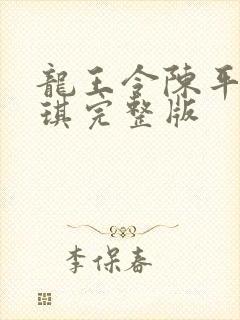 龍王令陳平
琪完整版
李保春